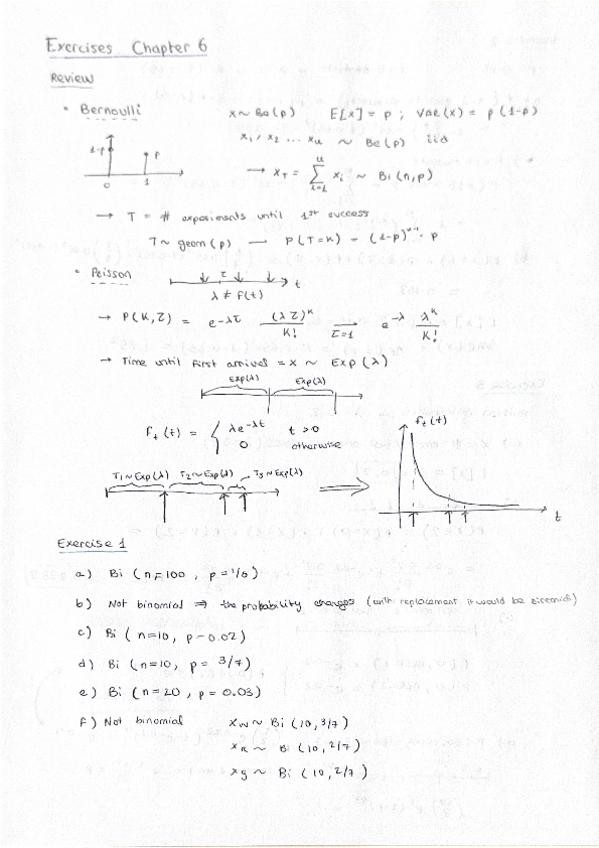 Exercises Chapter 6
Review
• Bernoulli X ~ Be(p) E[X] = p ; VAR(X) = p(1-p)
X₁, X₂ ... Xₙ ~ Be(p) iid
1-p p
0 1
→ X_T = Σ_{i=1}^{n} X_i ~ Bi(n,p)
→ T = # experiments until 1st success
T ~ geom(p) → P(T=K) = (1-p)^{K-1} · p
• Poisson τ t
λ ≠ f(t)
→ P(K,τ) = e^{-λτ} (λτ)^K / K! → τ=1 e^{-λ} λ^K / K!
→ Time until first arrival = X ~ Exp(λ)
Exp(λ) Exp(λ)
f_t(t) = { λe^{-λt} t > 0
0 otherwise
f_t(t)
T₁~Exp(λ) T₂~Exp(λ) T₃~Exp(λ) ⟹ t
Exercise 1
a) Bi (n=100, p=1/6)
b) Not binomial ⇒ the probability changes (with replacement it would be binomial)
c) Bi (n=10, p=0.02)
d) Bi (n=10, p= 3/7)
e) Bi (n=20, p=0.03)
f) Not binomial X_W ~ Bi (10, 3/7)
X_R ~ Bi (10, 2/7)
X_g ~ Bi (10, 2/7)